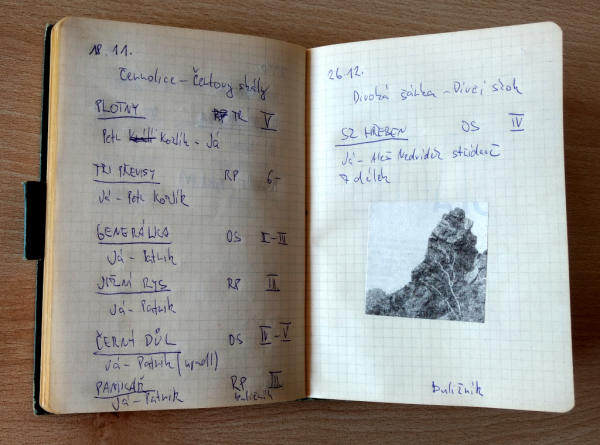 18.11.
Černolice - Čertovy skály
PLOTNY TR V
Petr Kozlík - Já
TŘI PŘEVISY RP 6-
Já - Petr Kozlík
GENERÁLKA OS II-III
Já - Patrik
JIŽNÍ RYS RP III
Já - Patrik
ČERNÝ DŮL OS IV-V
Já - Patrik
PAMIKAŘ RP III
Já - Patrik buližník
26.12.
Divoká šárka - Dívčí skok
SZ HŘEBEN OS IV
Já - Aleš Medvídek střídavě
7 délek
buližník